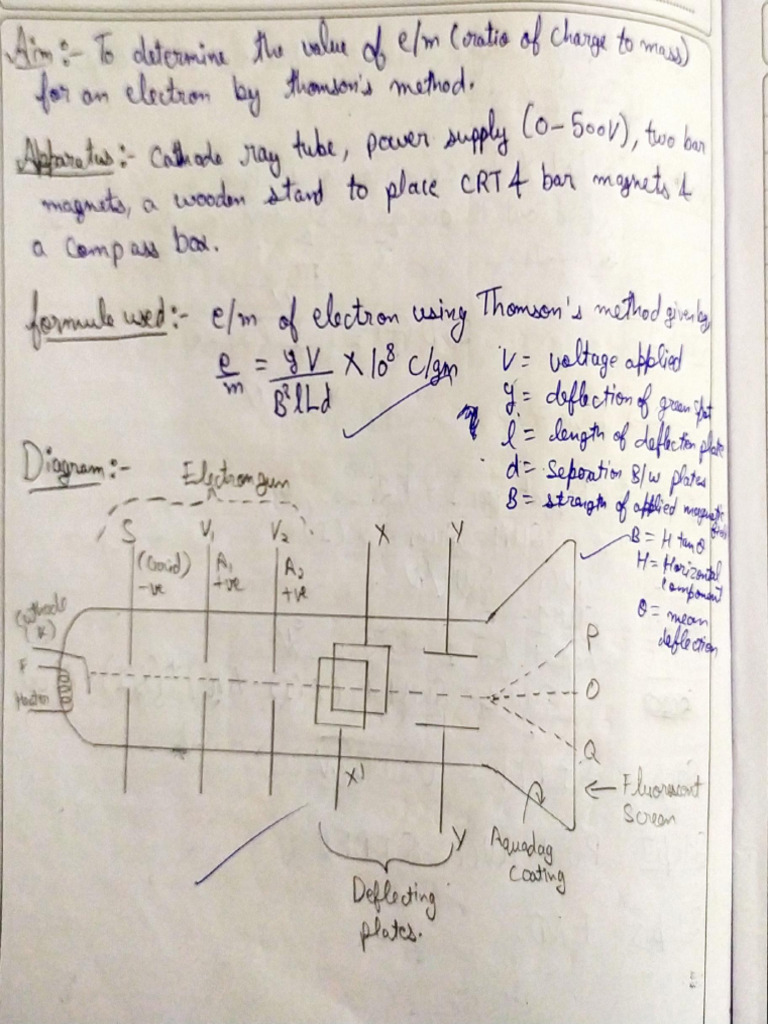 Aim:- To determine the value of e/m (ratio of charge to mass)
for an electron by thomson's method.
Apparatus:- Cathode ray tube, power supply (0-500V), two bar
magnets, a wooden stand to place CRT & bar magnets &
a compass box.
formula used:- e/m of electron using Thomson's method given by
e/m = yV/B²lLd × 10⁸ C/gm
V = voltage applied
y = deflection of green spot
l = length of deflection plate
d = Separation B/w plates
B = strength of applied magnetic
B = H tanθ
H = Horizontal
component
θ = mean
deflection
Diagram:-
Electron gun
S V₁ V₂ X Y
(Grid) A₁ A₂
-ve +ve +ve
Cathode
(K)
F
Heater
P
O
Q
X'
Y
← Fluorescent
Screen
Aquadag
Coating
Deflecting
plates.